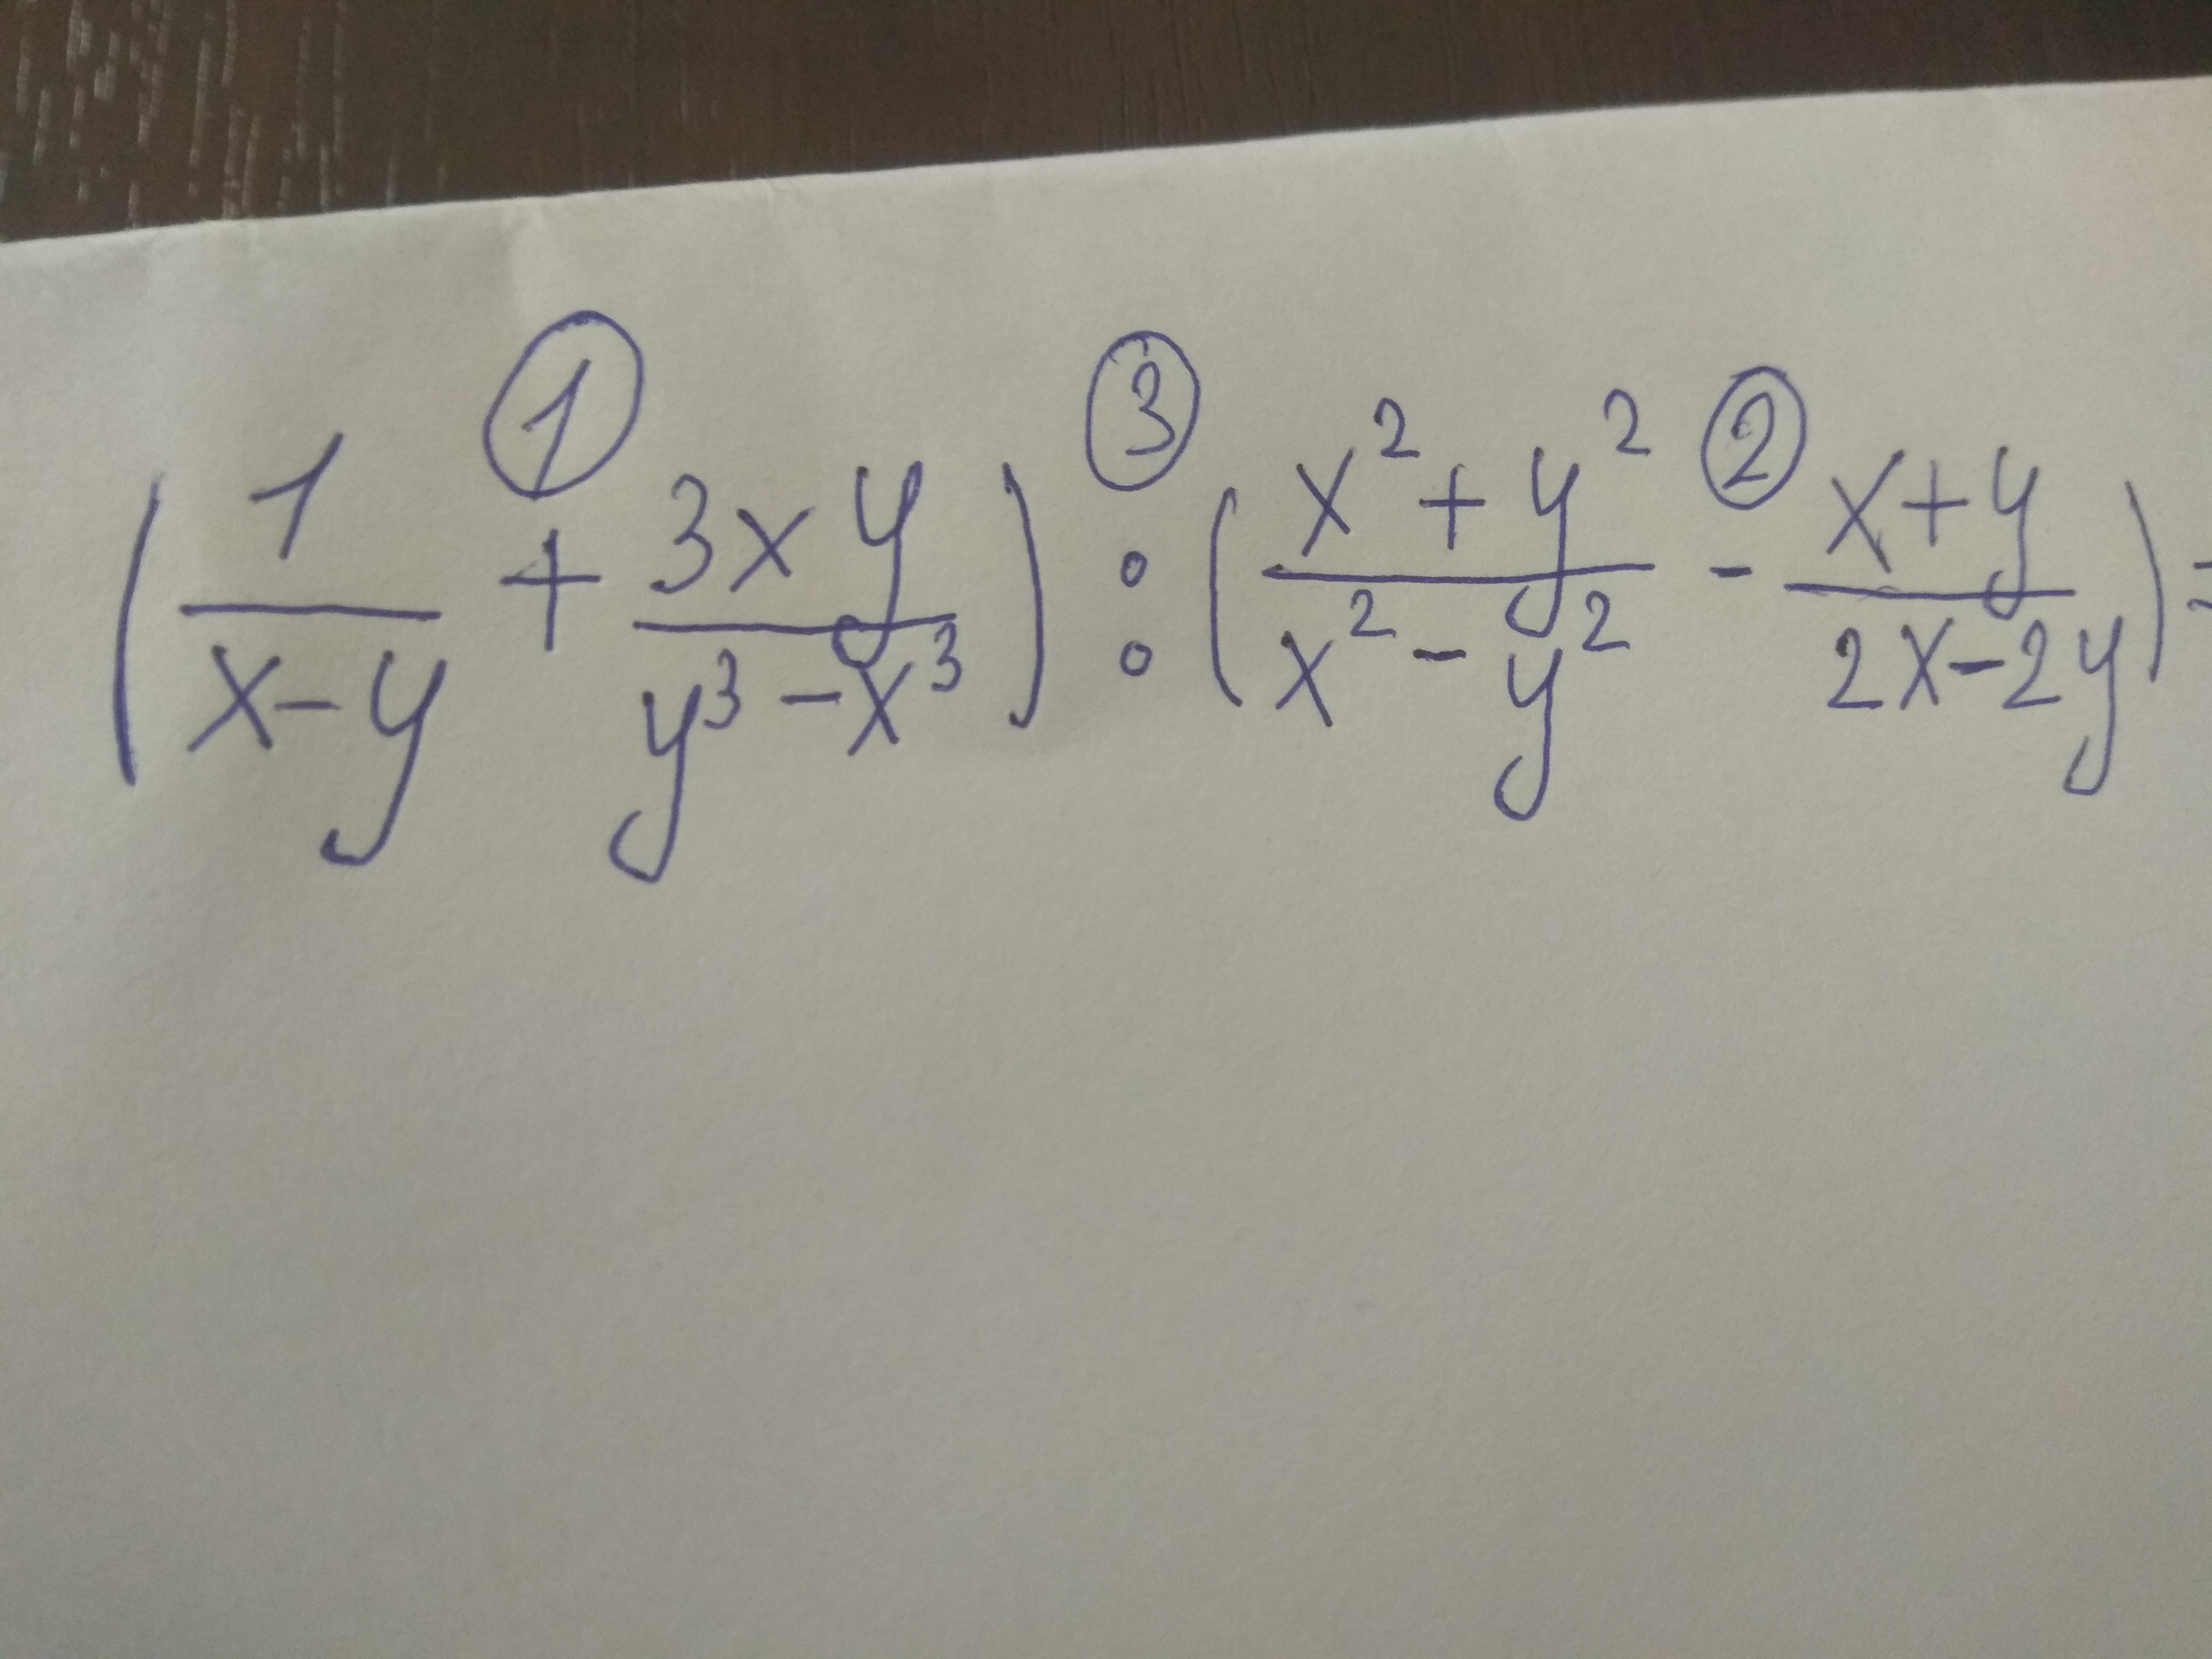 (1/(x-y) ① + 3xy/(y³-x³)) ③ : ((x²+y²)/(x²-y²) ② - (x+y)/(2x-2y)) =